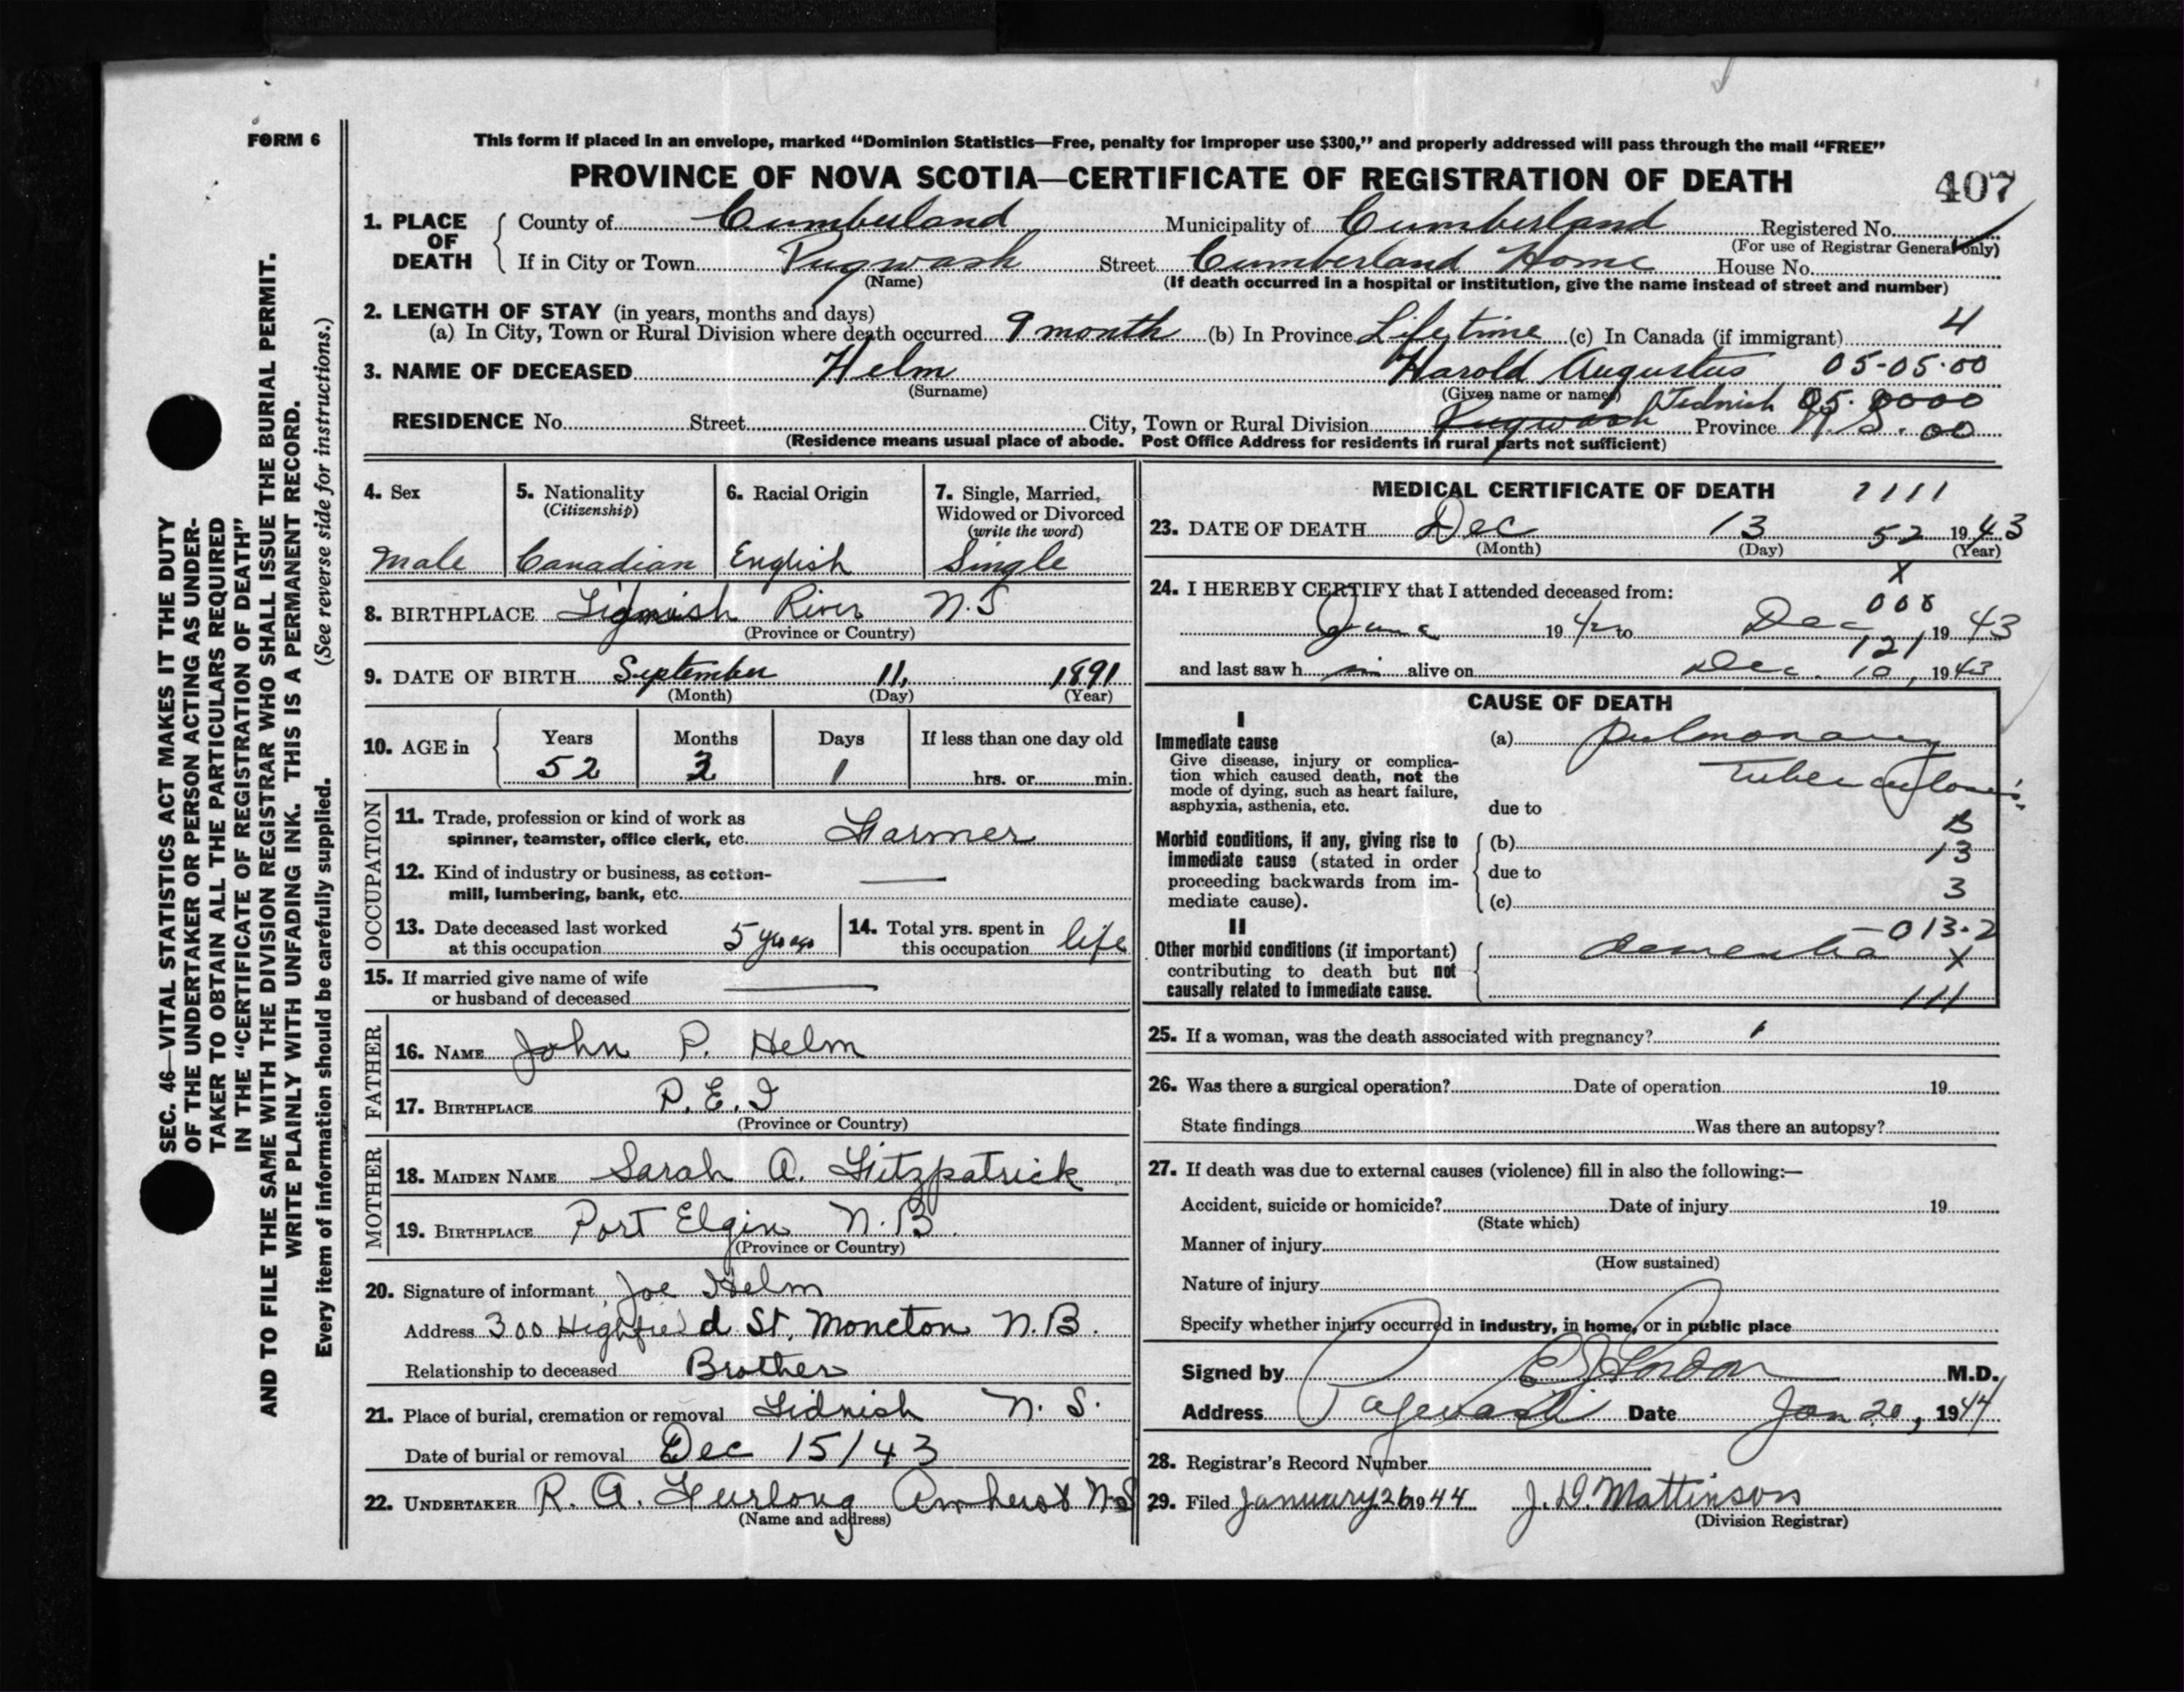 FORM 6
This form if placed in an envelope, marked “Dominion Statistics—Free, penalty for improper use $300,” and properly addressed will pass through the mail “FREE”
PROVINCE OF NOVA SCOTIA—CERTIFICATE OF REGISTRATION OF DEATH 407
1. PLACE OF DEATH County of Cumberland Municipality of Cumberland Registered No.
(For use of Registrar General only)
If in City or Town Pugwash Street Cumberland Home House No.
(Name) (If death occurred in a hospital or institution, give the name instead of street and number)
2. LENGTH OF STAY (in years, months and days)
(a) In City, Town or Rural Division where death occurred 9 month (b) In Province Lifetime (c) In Canada (if immigrant) 4
3. NAME OF DECEASED Helm Harold Augustus 05-05.00
(Surname) (Given name or names)
Tidnish 05. 0000
RESIDENCE No. Street City, Town or Rural Division Pugwash Province N.S. 00
(Residence means usual place of abode. Post Office Address for residents in rural parts not sufficient)
4. Sex
Male
5. Nationality
(Citizenship)
Canadian
6. Racial Origin
English
7. Single, Married,
Widowed or Divorced
(write the word)
Single
8. BIRTHPLACE Tidnish River N.S
(Province or Country)
9. DATE OF BIRTH September 11, 1891
(Month) (Day) (Year)
10. AGE in Years Months Days If less than one day old
52 3 1 hrs. or min.
OCCUPATION
11. Trade, profession or kind of work as
spinner, teamster, office clerk, etc. Farmer
12. Kind of industry or business, as cotton-
mill, lumbering, bank, etc. —
13. Date deceased last worked
at this occupation 5 yrs ago
14. Total yrs. spent in
this occupation life
15. If married give name of wife
or husband of deceased —
FATHER
16. NAME John P. Helm
17. BIRTHPLACE P.E.I
(Province or Country)
MOTHER
18. MAIDEN NAME Sarah A. Fitzpatrick
19. BIRTHPLACE Port Elgin N.B.
(Province or Country)
20. Signature of informant Joe Helm
Address 300 Highfield St. Moncton N.B.
Relationship to deceased Brother
21. Place of burial, cremation or removal Tidnish N. S.
Date of burial or removal Dec 15/43
22. UNDERTAKER R. A. Furlong Amherst N.S
(Name and address)
MEDICAL CERTIFICATE OF DEATH 1111
23. DATE OF DEATH Dec 13 52 1943
(Month) (Day) (Year)
x
24. I HEREBY CERTIFY that I attended deceased from:
008
June 1942 to Dec 1943
121
and last saw h im alive on Dec. 10, 1943
CAUSE OF DEATH
I
Immediate cause
Give disease, injury or complica-
tion which caused death, not the
mode of dying, such as heart failure,
asphyxia, asthenia, etc.
(a) Pulmonary
Tuberculosis
due to
B
Morbid conditions, if any, giving rise to
immediate cause (stated in order
proceeding backwards from im-
mediate cause).
(b) 13
due to
3
(c)
II
Other morbid conditions (if important)
contributing to death but not
causally related to immediate cause.
013.2
dementia X
111
25. If a woman, was the death associated with pregnancy?
26. Was there a surgical operation? Date of operation 19
State findings Was there an autopsy?
27. If death was due to external causes (violence) fill in also the following:—
Accident, suicide or homicide? Date of injury 19
(State which)
Manner of injury
(How sustained)
Nature of injury
Specify whether injury occurred in industry, in home, or in public place
Signed by M.D.
Address Pugwash Date Jan 20, 1944
28. Registrar's Record Number
29. Filed January 26 1944 J. D. Mattinson
(Division Registrar)
SEC. 46—VITAL STATISTICS ACT MAKES IT THE DUTY
OF THE UNDERTAKER OR PERSON ACTING AS UNDER-
TAKER TO OBTAIN ALL THE PARTICULARS REQUIRED
IN THE “CERTIFICATE OF REGISTRATION OF DEATH”
AND TO FILE THE SAME WITH THE DIVISION REGISTRAR WHO SHALL ISSUE THE BURIAL PERMIT.
WRITE PLAINLY WITH UNFADING INK. THIS IS A PERMANENT RECORD.
Every item of information should be carefully supplied. (See reverse side for instructions.)